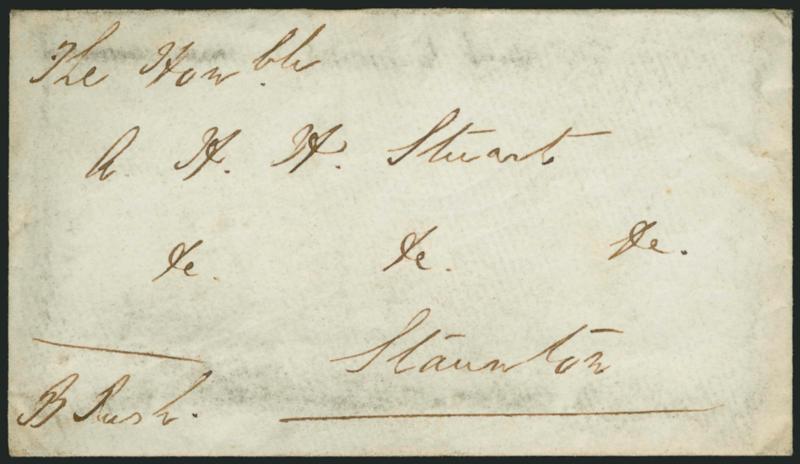 The Honble
A. H. H. Stuart
&c. &c. &c.
Staunton
B Rush.